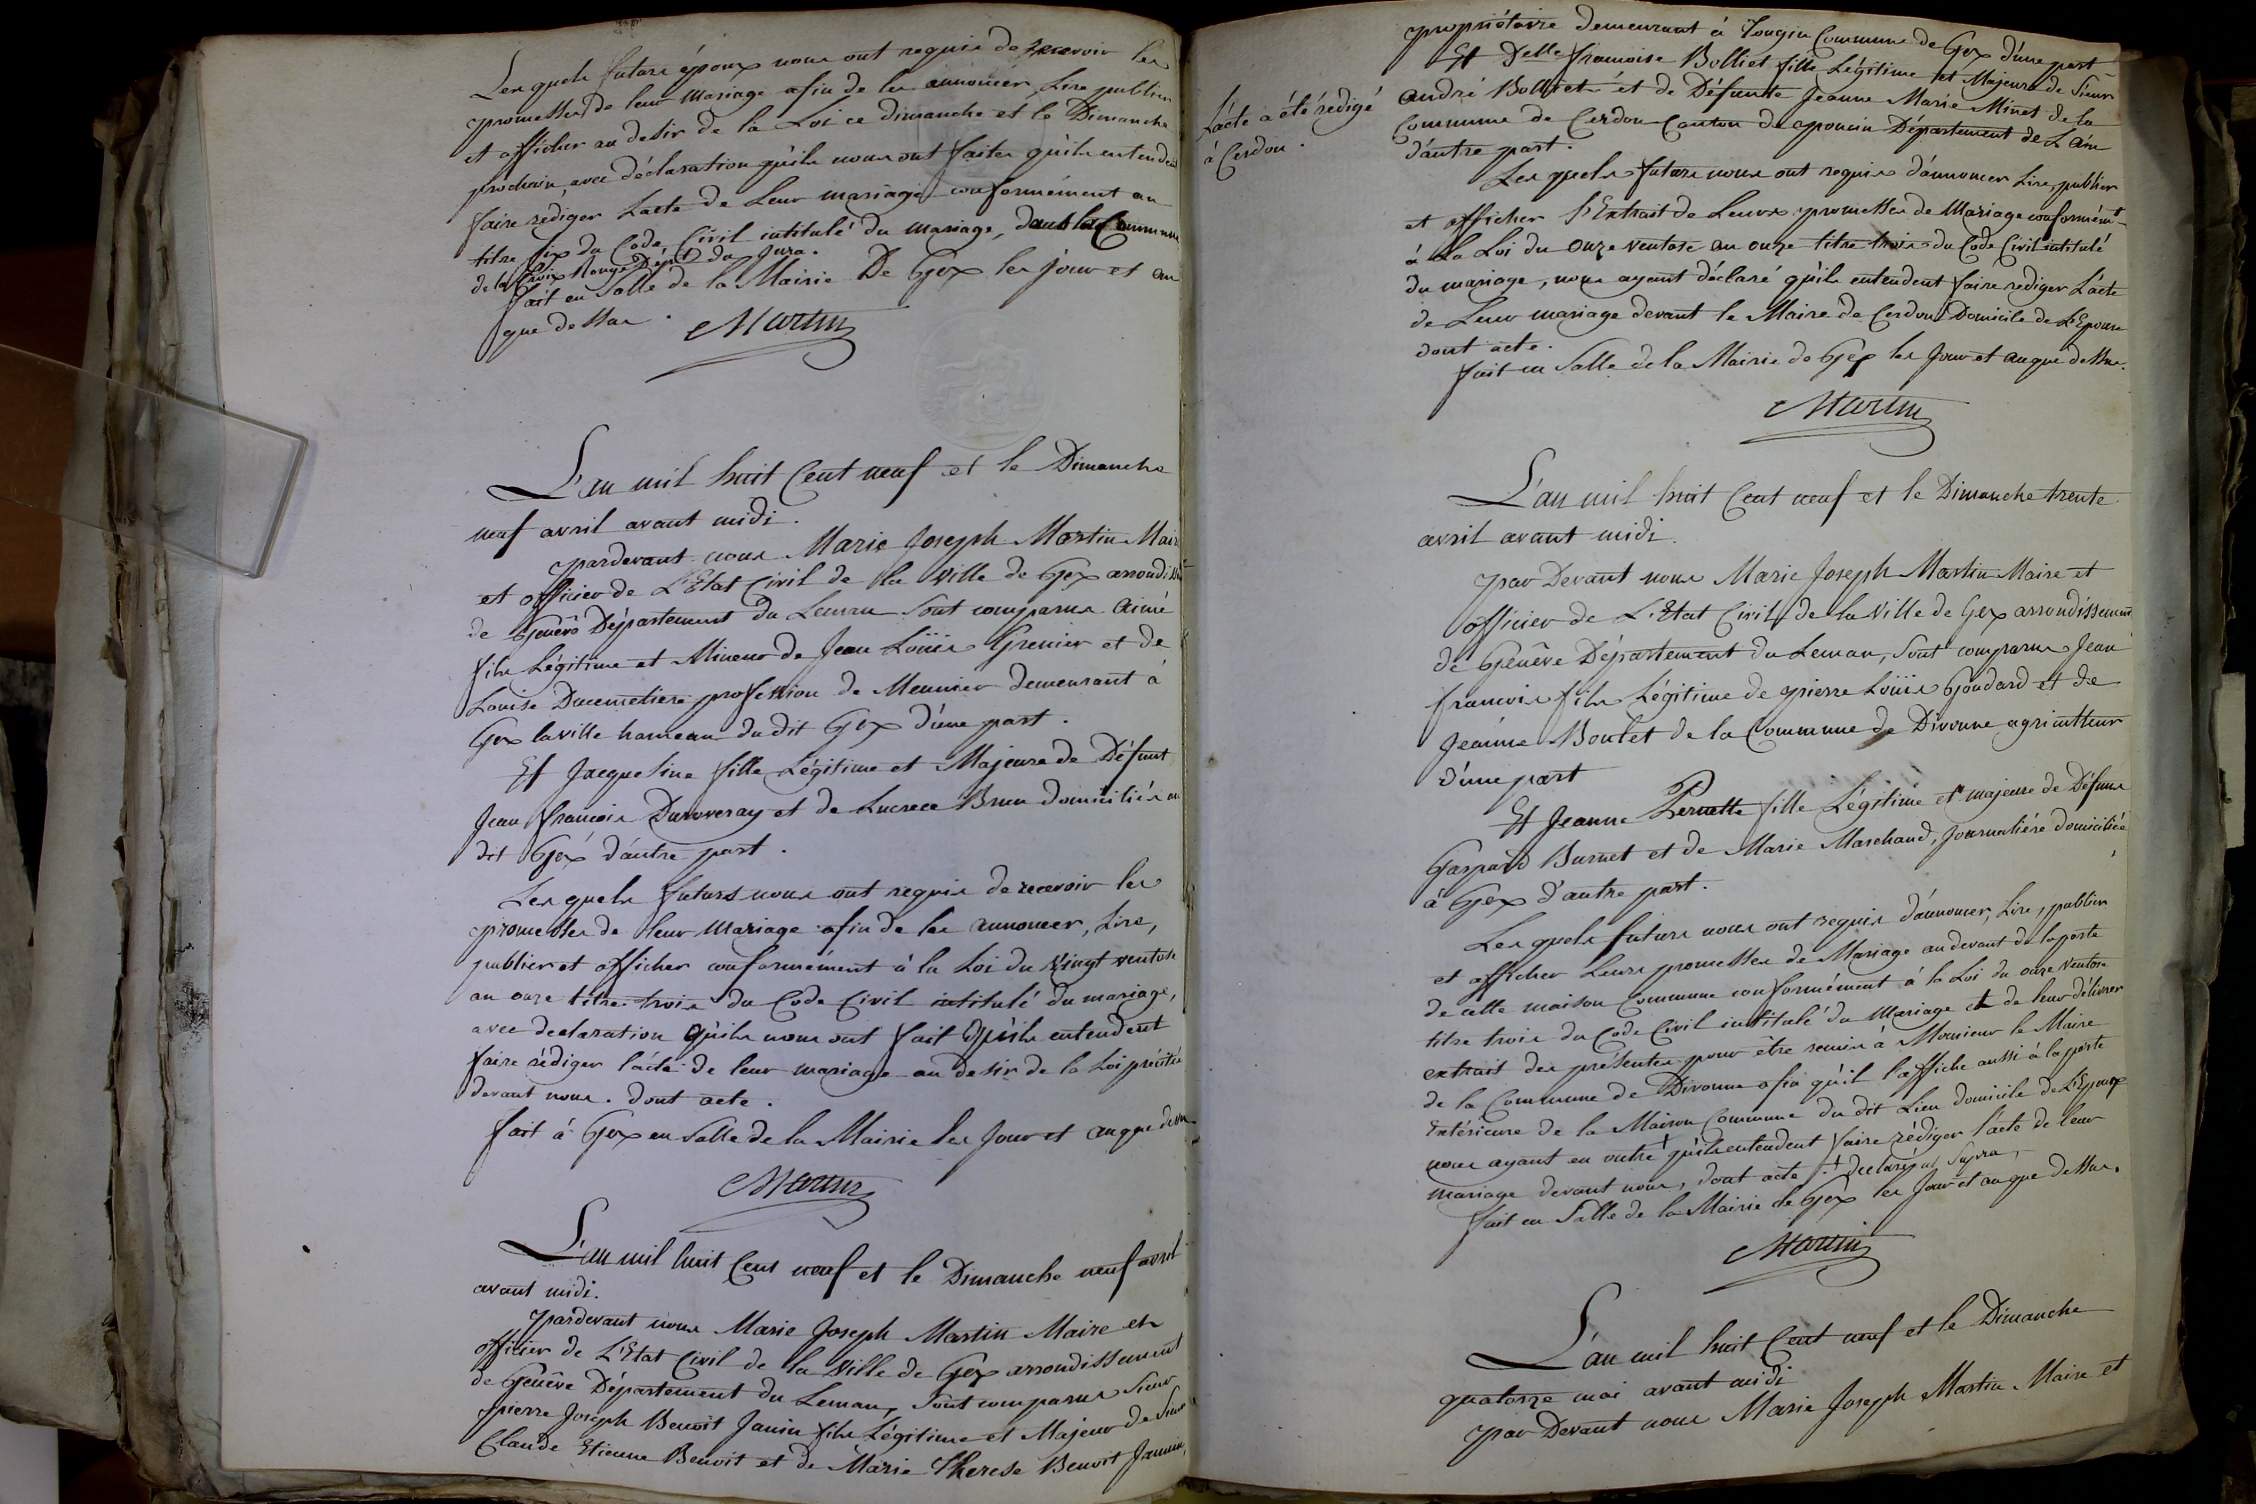 Les quels futurs époux nous ont requis de recevoir les
promesses de leur Mariage afin de les annoncer, Lire publier
et afficher au desir de la Loi ce dimanche et le Dimanche
prochain, avec déclaration qu'ils nous ont faites qu'ils entendent
faire rediger L'acte de Leur mariage conformément au
titre six du Code Civil intitulé du mariage, dans la Commune
de la Croix Rouge Dépt. du Jura.
fait en Salle de la Mairie De Gex les jour et an
que dessus.
Martin
L'an mil huit Cent neuf et le Dimanche
neuf avril avant midi.
pardevant nous Marie Joseph Martin Maire
et officier de L'Etat Civil de la Ville de Gex arrondisst
de Genêve Département du Leman sont comparus Aimé
fils Légitime et Mineur de Jean Loüis Grenier et de
Louise Ducemetiere profession de Meunier demeurant à
Gex la ville hameau du dit Gex d'une part.
Et Jacqueline fille Légitime et Majeure de Défunt
Jean francois Duroveray et de Lucrece Brun domiciliés au
dit Gex d'autre part.
Les quels futurs nous ont requis de recevoir les
promesses de leur Mariage afin de les annoncer, Lire,
publier et afficher conformément à la Loi du Vingt ventose
an onze titre trois du Code Civil intitulé du mariage,
avec declaration qu'ils nous ont fait qu'ils entendent
faire rédiger l'acte de leur mariage au desir de la Loi précitée
devant nous. dont acte.
fait à Gex en Salle de la Mairie les Jour et an que dessus
Martin
L'an mil huit Cent neuf et le Dimanche neuf avril
avant midi.
pardevant nous Marie Joseph Martin Maire et
officier de L'Etat Civil de la Ville de Gex arrondissement
de Genêve Département du Leman, Sont comparus Sieur
pierre Joseph Benoit Janin fils Légitime et Majeur de Sieur
Claude Etienne Benoit et de Marie Therese Benoit Jannin,
L'acte a été rédigé
à Cerdon.
propriétaire demeurant à Tougin Commune de Gex d'une part
Et Delle francoise Bolliet fille Légitime et Majeure de Sieur
andré Bolliet et de Défunte Jeanne Marie Minet de la
Commune de Cerdon Canton de poncin Département de L'ain
d'autre part.
Les quels futurs nous ont requis d'annoncer Lire, publier
et afficher l'Extrait de Leurs promesses de Mariage conformémt
à la Loi du onze ventose an onze titre trois du Code Civil intitulé
du mariage, nous ayant déclaré qu'ils entendent faire rediger L'acte
de Leur mariage devant le Maire de Cerdon Domicile de L'Epouse
dont acte.
fait en Salle de la Mairie de Gex les Jour et an que dessus.
Martin
L'an mil huit Cent neuf et le Dimanche trente
avril avant midi.
par Devant nous Marie Joseph Martin Maire et
officier de L'Etat Civil de la Ville de Gex arrondissement
de Genêve Département du Leman, sont comparus Jean
francois fils Légitime de pierre Loüis Goudard et de
Jeanne Boutet de la Commune de Divonne agriculteur
d'une part
Et Jeanne Pernette fille Légitime et majeure de Défunt
Gaspard Burnet et de Marie Marchand, Journaliére domiciliée
à Gex d'autre part.
Les quels futurs nous ont requis d'annoncer, Lire, publier
et afficher Leurs promesses de Mariage au devant de la porte
de cette maison Commune conformément à la Loi du onze Ventose
titre trois du Code Civil intitulé du Mariage et de leur délivrer
extrait des présentes pour être remis à Monsieur le Maire
de la Commune de Divonne afin qu'il l'affiche aussi à la porte
Extérieure de la Maison Commune du dit Lieu domicile de L'Epoux
nous ayant en outre + qu'ils entendent faire rédiger l'acte de leur
mariage devant nous, dont acte. + declaré, ut Supra,
fait en Salle de la Mairie de Gex les Jour et an que dessus.
Martin
L'an mil huit Cent neuf et le Dimanche
quatorze mai avant midi
par Devant nous Marie Joseph Martin Maire et